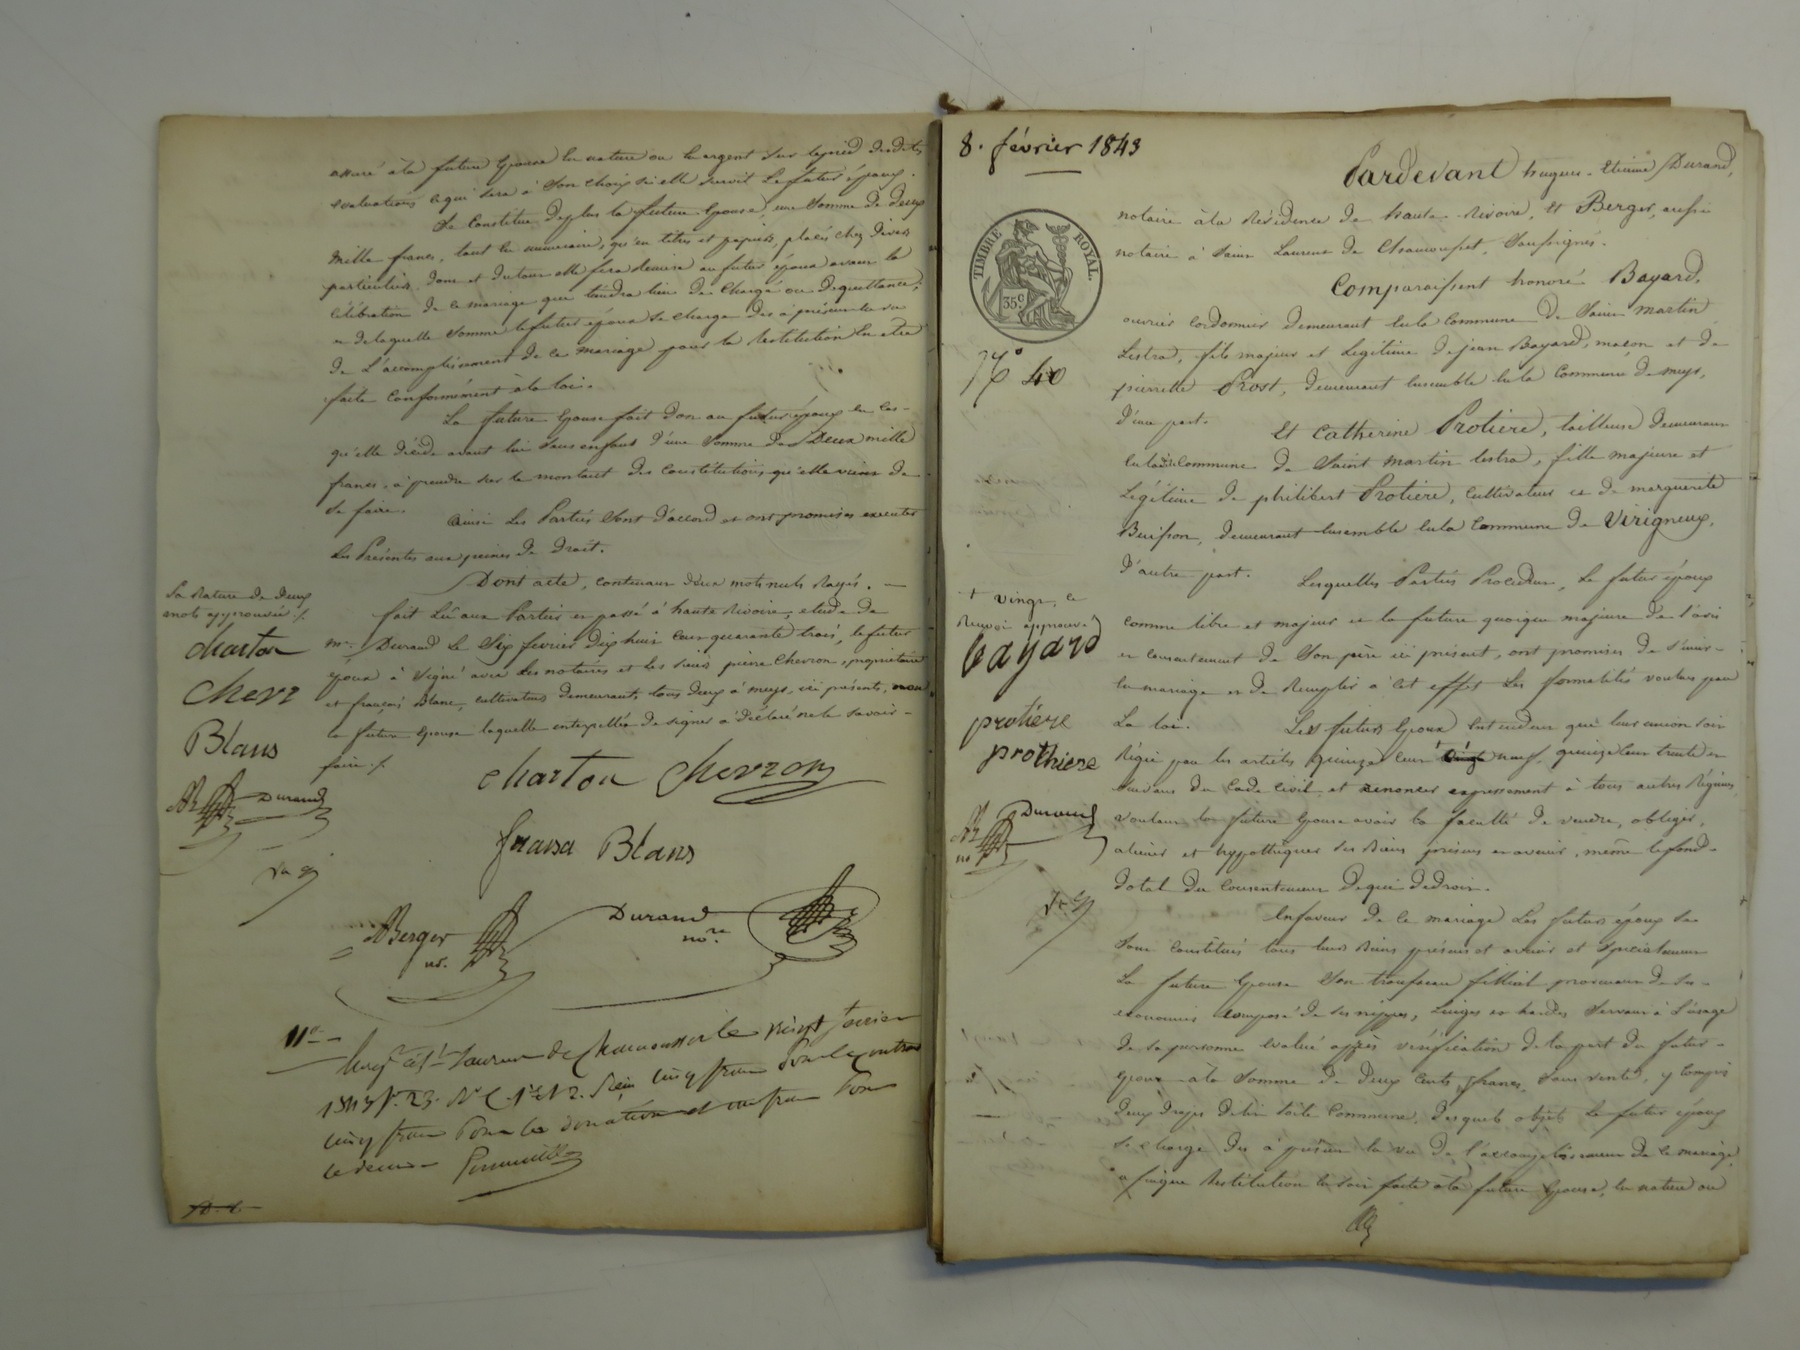 assuré à la future Epouse en nature ou en argent sur le pied desdites
évaluations ce qui sera à Son choix si elle survit le futur époux.
Se Constitue de plus la future Epouse, une Somme de deux
mille francs, tant en numéraire, qu'en titres et papiers, placés chez divers
particuliers dont et du tout elle fera remise au futur époux avant la
célébration de ce mariage que tiendra lieu de Charge ou de quittance;
de laquelle Somme le futur époux se charge dès à présent en vue
de L'accomplissement de ce mariage pour la Restitution en etre
faite Conformément à la loi.
La future Epouse fait Don au futur époux en Cas
qu'elle décède avant lui Sans enfant D'une Somme de Deux mille
francs, à prendre sur le montant des Constitutions qu'elle vient de
Se faire.
Ainsi Les Parties Sont d'accord et ont promis executer
Les Présentes aux peines de Droit.
Dont acte, contenant deux mots nuls Rayés.
fait Lu aux Parties et passé à haute Rivoire, etude de
me. Durand Le Six février Dix huit Cent quarante trois, le futur
époux a Signé avec Les notaires et les Sieurs pierre Chevron, propriétaire
et françois Blanc, cultivateur demeurants tous deux à meys, ici présents, non
la future epouse laquelle interpellée de signer a déclaré ne le Savoir
faire ./.
La Rature de deux
mots approuvée ./.
charton
Chevr
Blans
Durand
charton Chevron
fransa Blans
Berger
no.
Durand
nore.
11e
Enrg. à St Laurent de Chamousset le vingt février
1843 fo. 23. Vo. C. 1re et 2. Reçu cinq francs Pour le Contrat
cinq francs Pour la donation et un franc Pour
le decime
8. février 1843
Pardevant hugues-Etienne Durand,
notaire à la Résidence de haute-Rivoire, Et Berger, aussi
notaire à Saint Laurent de Chamousset, Soussignés.
TIMBRE ROYAL.
35c
Comparaissent honoré Bayard,
ouvrier Cordonnier demeurant en la Commune De Saint martin
Lestra, fils majeur et Légitime de jean Bayard, maçon et de
pierrette Prost, demeurant Ensemble en la Commune de meys,
D'une part.
No 40
Et Catherine Protiere, tailleuse demeurant
en ladite Commune De Saint martin lestra, fille majeure et
Légitime de philibert Protiere, Cultivateur et de marguerite
Buisson, demeurant Ensemble en la Commune de Virigneux,
D'autre part.
Lesquelles Parties Procédant, Le futur époux
comme libre et majeur et la future quoique majeure de l'avis
et Consentement de Son père ici présent, ont promis de S'unir
en mariage et de Remplir à Cet effet Les formalités voulues par
La loi.
Les futurs Epoux Entendent que leur union Soit
Régie par les articles quinze Cent neuf, quinze Cent trente et
Suivans du Code Civil et renoncer expressement à tous autres Régimes,
voulant la future Epouse avoir la faculté de vendre, obliger,
aliéner et hypothéquer ses Biens présens et avenir, même le fond
Dotal du Consentement De qui de droit.
+ vingt, ce
Renvoi approuvé
bayard
protiere
prothiere
Durand
no
En faveur de ce mariage Les futurs époux Se
Sont Constitués tous leurs Biens présens et avenir et Specialement
La future Epouse Son trousseau fillial provenant de ses
economies Composé de ses nippes, Linges et hardes Servant à L'usage
de Sa personne Evalué après vérification de la part du futur
Epoux à la Somme de Deux Cents francs, Sans vente, y Compris
deux draps de lit toile Commune, desquels objets Le futur époux
Se Charge dès à présent en vue de L'accomplissement de Ce mariage,
afin que Restitution en Soit faite à la future Epouse, en nature ou